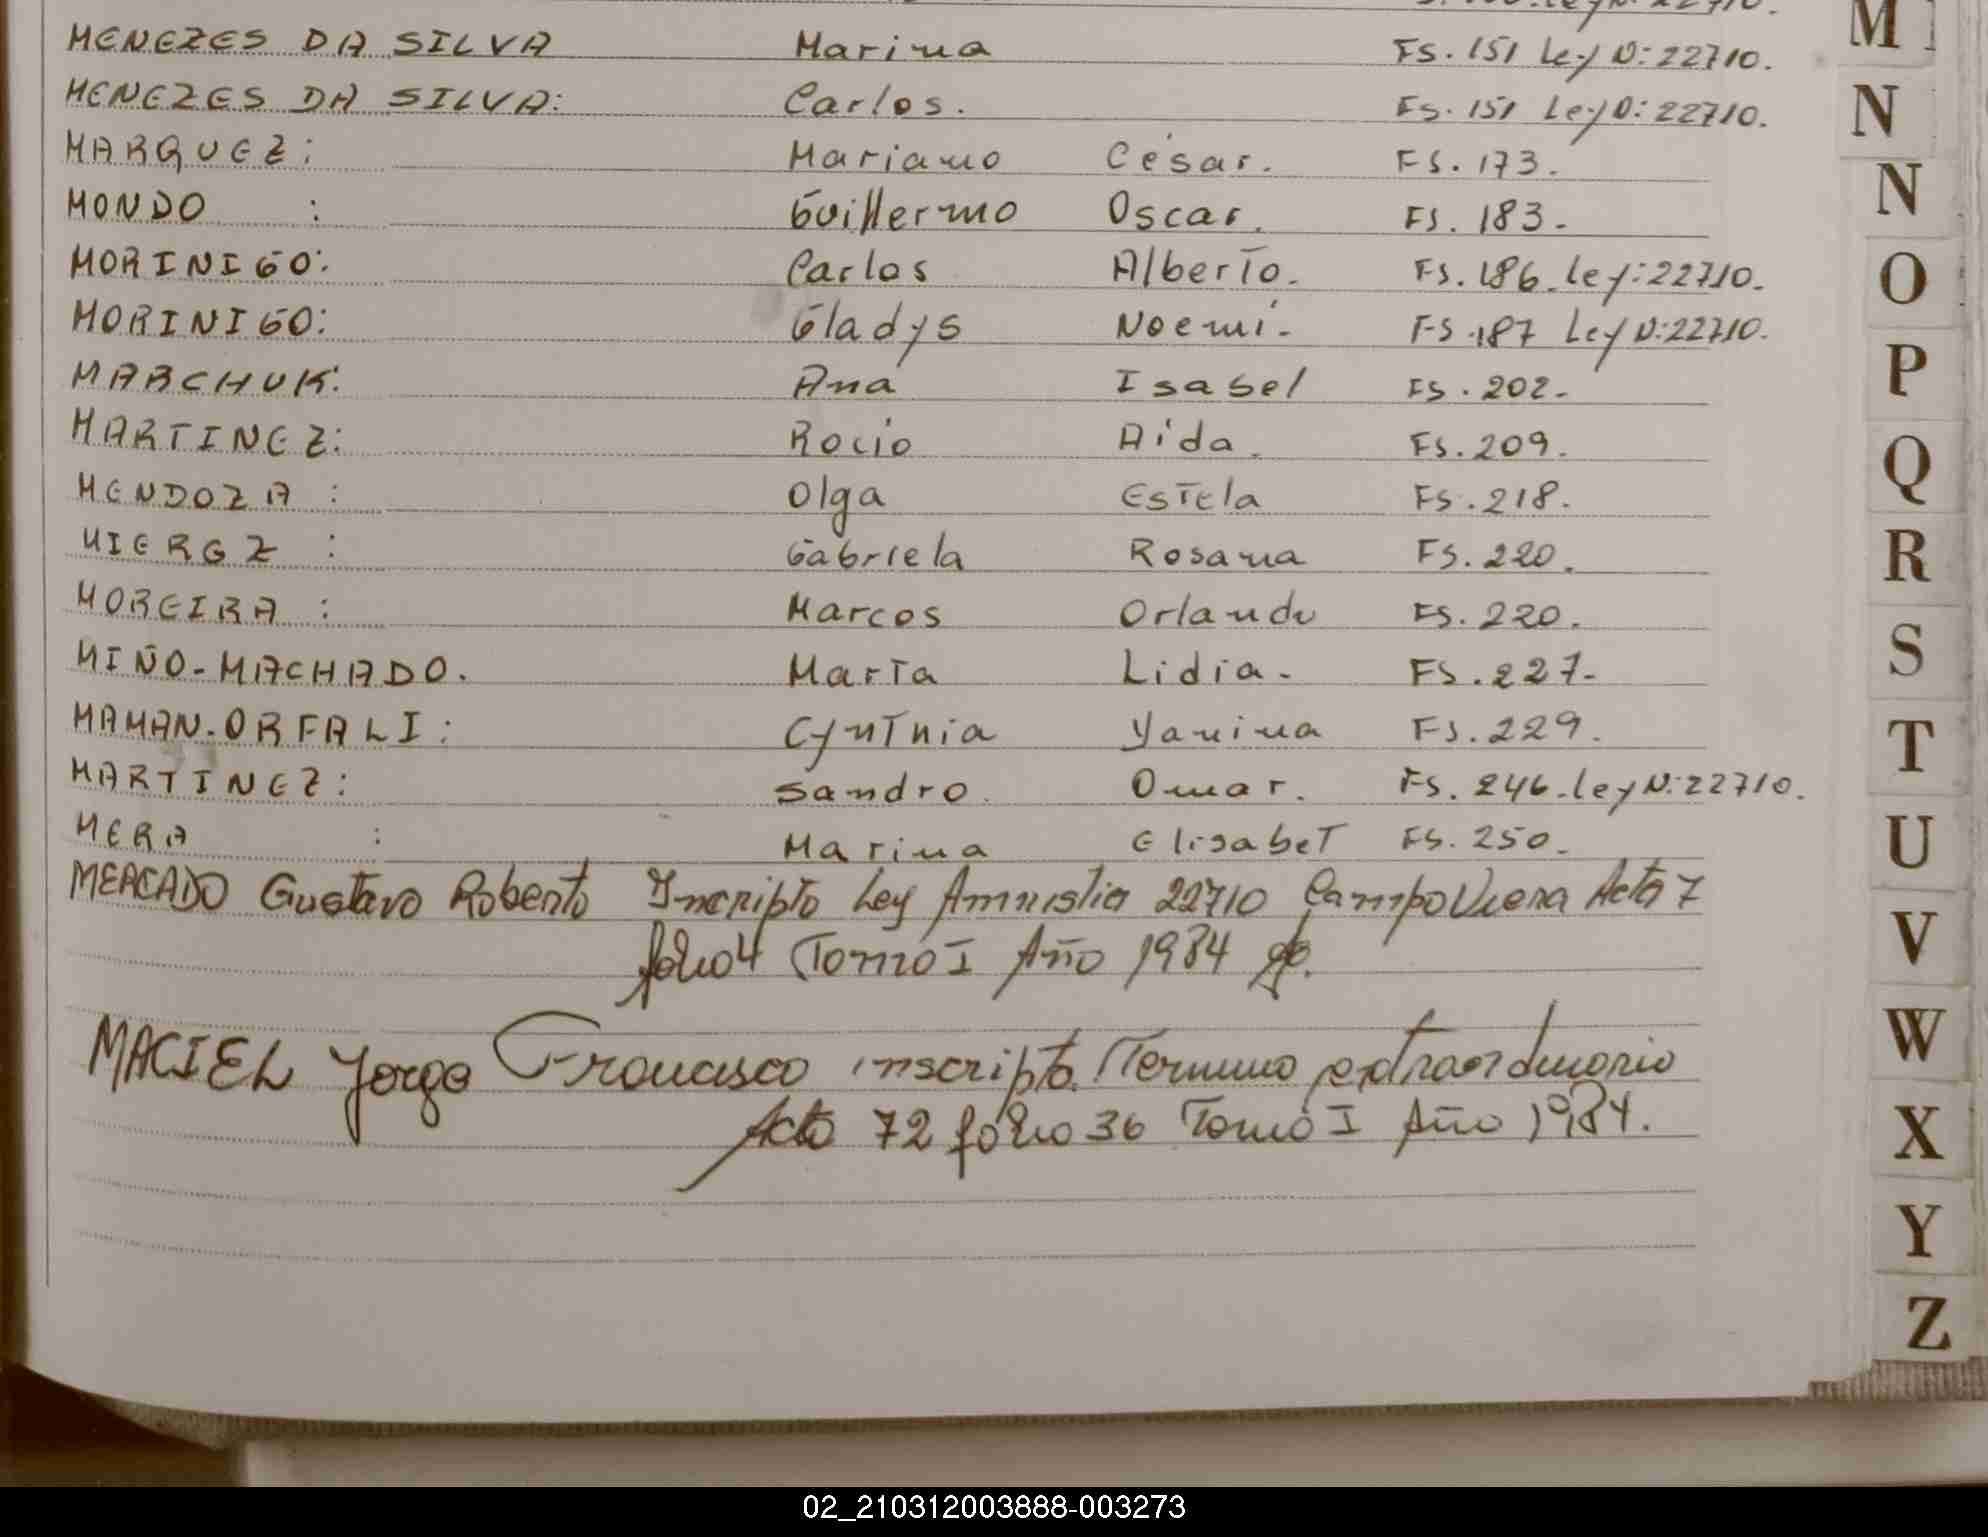 Ley N: 22710.
MENEZES DA SILVA Marina FS. 151 Ley N: 22710.
MENEZES DA SILVA: Carlos. FS. 151 Ley N: 22710.
MARQUEZ: Mariano César. FS. 173.
MONDO : Guillermo Oscar. FS. 183.
MORINIGO: Carlos Alberto. FS. 186. Ley: 22710.
MORINIGO: Gladys Noemi. FS. 187 Ley N: 22710.
MARCHUK: Ana Isabel FS. 202.
MARTINEZ: Rocio Aida. FS. 209.
MENDOZA : Olga Estela FS. 218.
MIEREZ : Gabriela Rosana FS. 220.
MOREIRA : Marcos Orlando FS. 220.
MIÑO-MACHADO. Marta Lidia. FS. 227.
MAMAN-ORFALI: Cynthia Yanina FS. 229.
MARTINEZ: Sandro Omar. FS. 246. Ley N: 22710.
MERA : Marina Elisabet FS. 250.
MERCADO Gustavo Roberto Inscripto Ley Amnistia 22710 Campo Viera Acta 7
folio 4 Tomo I Año 1984
MACIEL Jorge Francisco inscripto Termino extraordinario
Acta 72 folio 36 Tomo I Año 1984.
M
N
N
O
P
Q
R
S
T
U
V
W
X
Y
Z
02_210312003888-003273